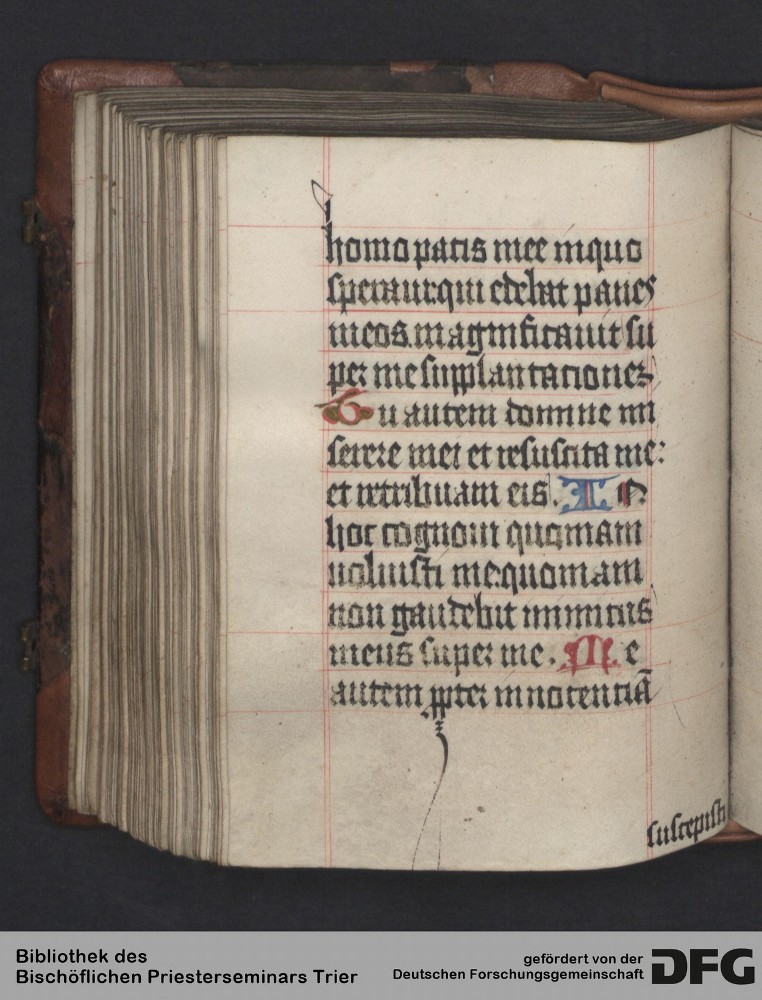 homo pacis mee in quo
speraui.qui edebat panes
meos.magnificauit su
per me supplantationes
Tu autem domine mi
serere mei et resuscita me:
et retribuam eis. In
hoc cognoui quoniam
uoluisti me.quoniam
non gaudebit inimicus
meus super me. Me
autem ꝓpter innocentiā
suscepisti
Bibliothek des
Bischöflichen Priesterseminars Trier
gefördert von der
Deutschen Forschungsgemeinschaft
DFG